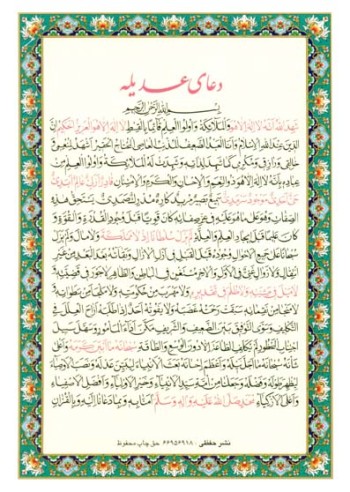 دعای عدیله
بسم الله الرحمن الرحیم
شَهِدَ اللهُ اَنَّهُ لا اِلهَ اِلّا هُوَ وَالْمَلائِکَةُ وَاُولُوا الْعِلْمِ قائِماً بِالْقِسْطِ لا اِلهَ اِلّا هُوَ الْعَزیزُ الْحَکیمُ اِنَّ
الدّینَ عِنْدَ اللهِ الْاِسْلامُ وَاَنَا الْعَبْدُ الضَّعیفُ الْمُذْنِبُ الْعاصِی الْمُحْتاجُ الْحَقیرُ اَشْهَدُ لِمُنْعِمی وَ
خالِقی وَرازِقی وَمُکْرِمی کَما شَهِدَ لِذاتِهِ وَشَهِدَتْ لَهُ الْمَلائِکَةُ وَاُولُوا الْعِلْمِ مِنْ
عِبادِهِ بِاَنَّهُ لا اِلهَ اِلّا هُوَ ذُو النِّعَمِ وَالْاِحْسانِ وَالْکَرَمِ وَالْاِمْتِنانِ قادِرٌ اَزَلِیٌّ عالِمٌ اَبَدِیٌّ
حَیٌّ اَحَدِیٌّ مَوْجُودٌ سَرْمَدِیٌّ سَمیعٌ بَصیرٌ مُریدٌ کارِهٌ مُدْرِکٌ صَمَدِیٌّ یَسْتَحِقُّ هذِهِ
الصِّفاتِ وَهُوَ عَلی ما هُوَ عَلَیْهِ فی عِزِّ صِفاتِهِ کانَ قَوِیّاً قَبْلَ وُجُودِ الْقُدْرَةِ وَالْقُوَّةِ وَ
کانَ عَلیماً قَبْلَ ایجادِ الْعِلْمِ وَالْعِلَّةِ لَمْ یَزَلْ سُلْطاناً اِذْ لا مَمْلَکَةَ وَلا مالَ وَلَمْ یَزَلْ
سُبْحاناً عَلی جَمیعِ الْاَحْوالِ وُجُودُهُ قَبْلَ الْقَبْلِ فی اَزَلِ الْآزالِ وَبَقاؤُهُ بَعْدَ الْبَعْدِ مِنْ غَیْرِ
انْتِقالٍ وَلا زَوالٍ غَنِیٌّ فِی الْاَوَّلِ وَالْآخِرِ مُسْتَغْنٍ فِی الْباطِنِ وَالظّاهِرِ لا جَوْرَ فی قَضِیَّتِهِ وَ
لا مَیْلَ فی مَشِیَّتِهِ وَلا ظُلْمَ فی تَقْدیرِهِ وَلا مَهْرَبَ مِنْ حُکُومَتِهِ وَلا مَلْجَاَ مِنْ سَطَواتِهِ وَ
لا مَنْجا مِنْ نَقِماتِهِ سَبَقَتْ رَحْمَتُهُ غَضَبَهُ وَلا یَفُوتُهُ اَحَدٌ اِذا طَلَبَهُ اَزاحَ الْعِلَلَ فِی
التَّکْلیفِ وَسَوَّی التَّوْفیقَ بَیْنَ الضَّعیفِ وَالشَّریفِ مَکَّنَ اَداءَ الْمَأْمُورِ وَسَهَّلَ سَبیلَ
اجْتِنابِ الْمَحْظُورِ لَمْ یُکَلِّفِ الطّاعَةَ اِلّا دُونَ الْوُسْعِ وَالطّاقَةِ سُبْحانَهُ ما اَبْیَنَ کَرَمَهُ وَ اَعْلی
شَأْنَهُ سُبْحانَهُ ما اَجَلَّ نَیْلَهُ وَ اَعْظَمَ اِحْسانَهُ بَعَثَ الْاَنْبِیاءَ لِیُبَیِّنَ عَدْلَهُ وَ نَصَبَ الْاَوْصِیاءَ
لِیُظْهِرَ طَوْلَهُ وَ فَضْلَهُ وَجَعَلَنا مِنْ اُمَّةِ سَیِّدِ الْاَنْبِیاءِ وَ خَیْرِ الْاَوْلِیاءِ وَ اَفْضَلِ الْاَصْفِیاءِ
وَ اَعْلَی الْاَزْکِیاءِ مُحَمَّدٍ صَلَّی اللهُ عَلَیْهِ وَ الِهِ وَ سَلَّمَ امَنّا بِهِ وَ بِما دَعانا اِلَیْهِ وَ بِالْقُرْانِ
نشر حفظی ۶۶۹۵۶۹۱۸ حق چاپ محفوظ